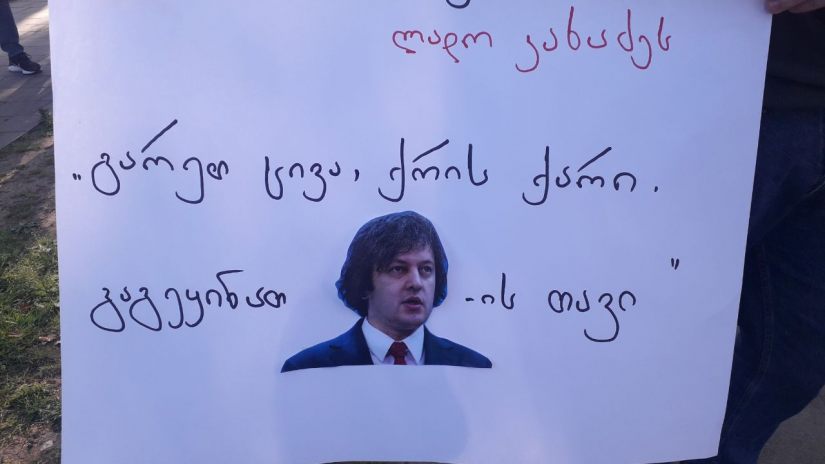 ლადო კახაძეს
„გარეთ ცივა, ქრის ქარი.
გაგეყინათ -ის თავი"